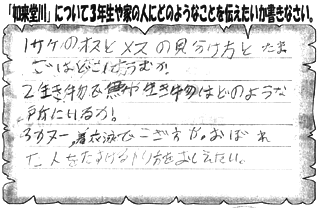 「如来堂川」について3年生や家の人にどのようなことを伝えたいか書きなさい。
1サケのオスとメスの見分け方とたま
ごはどこにうむか
2生き物で魚や生き物はどのような
所にいるか!
3カヌー、着衣泳でこぎ方が。おぼれ
た人をたすけるやり方をおしえたい。